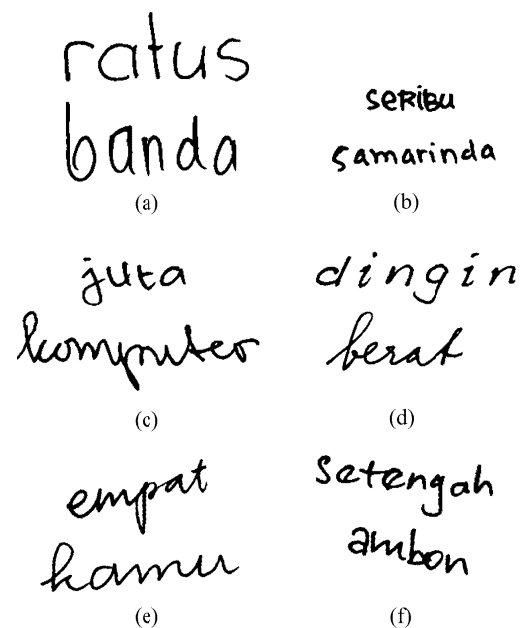 ratus
banda
(a)
SERIBU
samarinda
(b)
juta
komputer
(c)
dingin
berat
(d)
empat
kamu
(e)
setengah
ambon
(f)